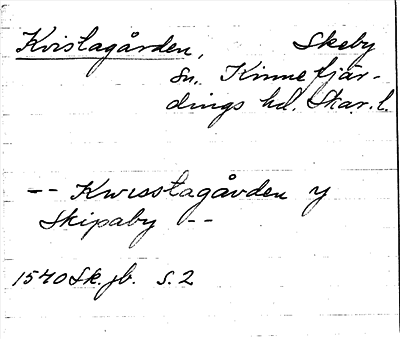 Kvistagården, Skeby
sn., Kinnefjär-
dings hd. Skar. l.
-- Kwisstagården y
Skipaby --
1540 Sk. jb. s. 2